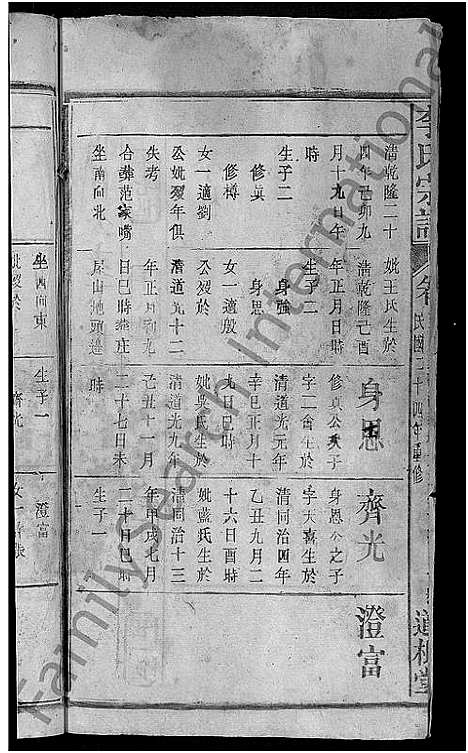 李氏宗譜
民國二十四年重修
道根堂
清乾隆二十
四年己卯九
月十九日午
時
生子二
修真
修樽
女一適劉
公妣歿年俱
失考
合葬范家嘴
坐南向北
妣王氏生於
清乾隆己酉
年正月
生子二
身強
身思
女一適殷
公歿於
清道光十二
年正月初九
日巳時葬庄
屋山地頭邊
身思
修真公次子
字二
清道光元年
辛巳正月十
九日巳時
妣吳氏生於
清道光九年
己丑十一月
二十七日未
時
齊光
身思公之子
字天喜生於
清同治四年
乙丑九月二
十六日酉時
妣藍氏生於
清同治十三
年甲戌七月
二十日巳時
生子一
澄富
坐西向東
生子一
齊光
澄富
FamilySearch International